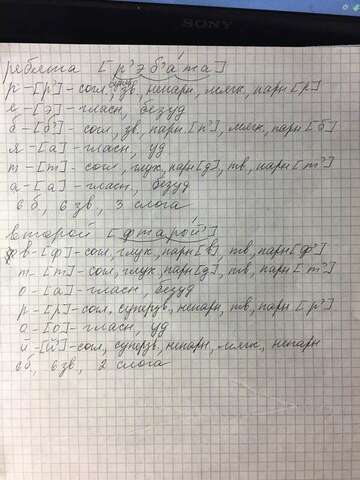 SONY
ребята [р'эб'ата]
р - [р'] - согл, супер зв, непарн, мягк, парн [р]
е - [э] - гласн, безуд
б - [б'] - согл, зв, парн [п'], мягк, парн [б]
я - [а] - гласн, уд
т - [т] - согл, глух, парн [д], тв, парн [т']
а - [а] - гласн, безуд
6 б, 6 зв, 3 слога
второй [фтарой']
в - [ф] - сол, глух, парн [в], тв, парн [ф']
т - [т] - сол, глух, парн [д], тв, парн [т']
о - [а] - гласн, безуд
р - [р] - согл. суперзв, непарн, тв, парн [р']
о - [о] - гласн, уд
й - [й'] - согл, суперзв, непарн, мягк, непарн
6 б, 6 зв, 2 слога